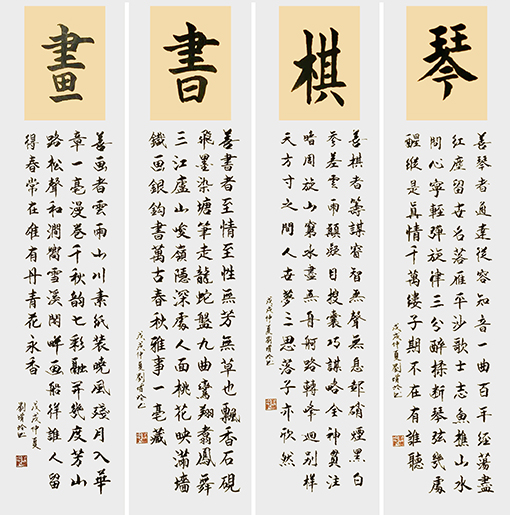 琴
善琴者通達從容知音一曲百年經蕩盡
紅塵留世名落雁平沙歌士志魚樵山水
問心寧輕彈旋律三分醉揉斷琴弦幾處
醒縱是真情千萬縷子期不在有誰聽
戊戌仲夏劉增
棋
善棋者籌謀睿智無聲無息部硝煙黑白
參差雲雨顛疑目投囊巧謀略全神貫注
暗周旋山窮水盡無舟舸路轉峰迴別樣
天方寸之間人世夢三思落子亦欣然
戊戌仲夏劉增
書
善書者至情至性無芳無草也飄香石硯
飛墨染塘筆走龍蛇盤九曲鸞翔翥鳳舞
三江廬山峻嶺隱深處人面桃花映滿墻
鐵画銀鈎書萬古春秋雅事一毫藏
戊戌仲夏劉增
畫
善画者雲雨山川素紙裝曉風殘月入華
章一毫漫卷千秋韵七彩融并幾度芳山
路松聲和澗響雪溪閑畔魚船徉誰人留
得春常在唯有丹青花永香
戊戌仲夏
劉增